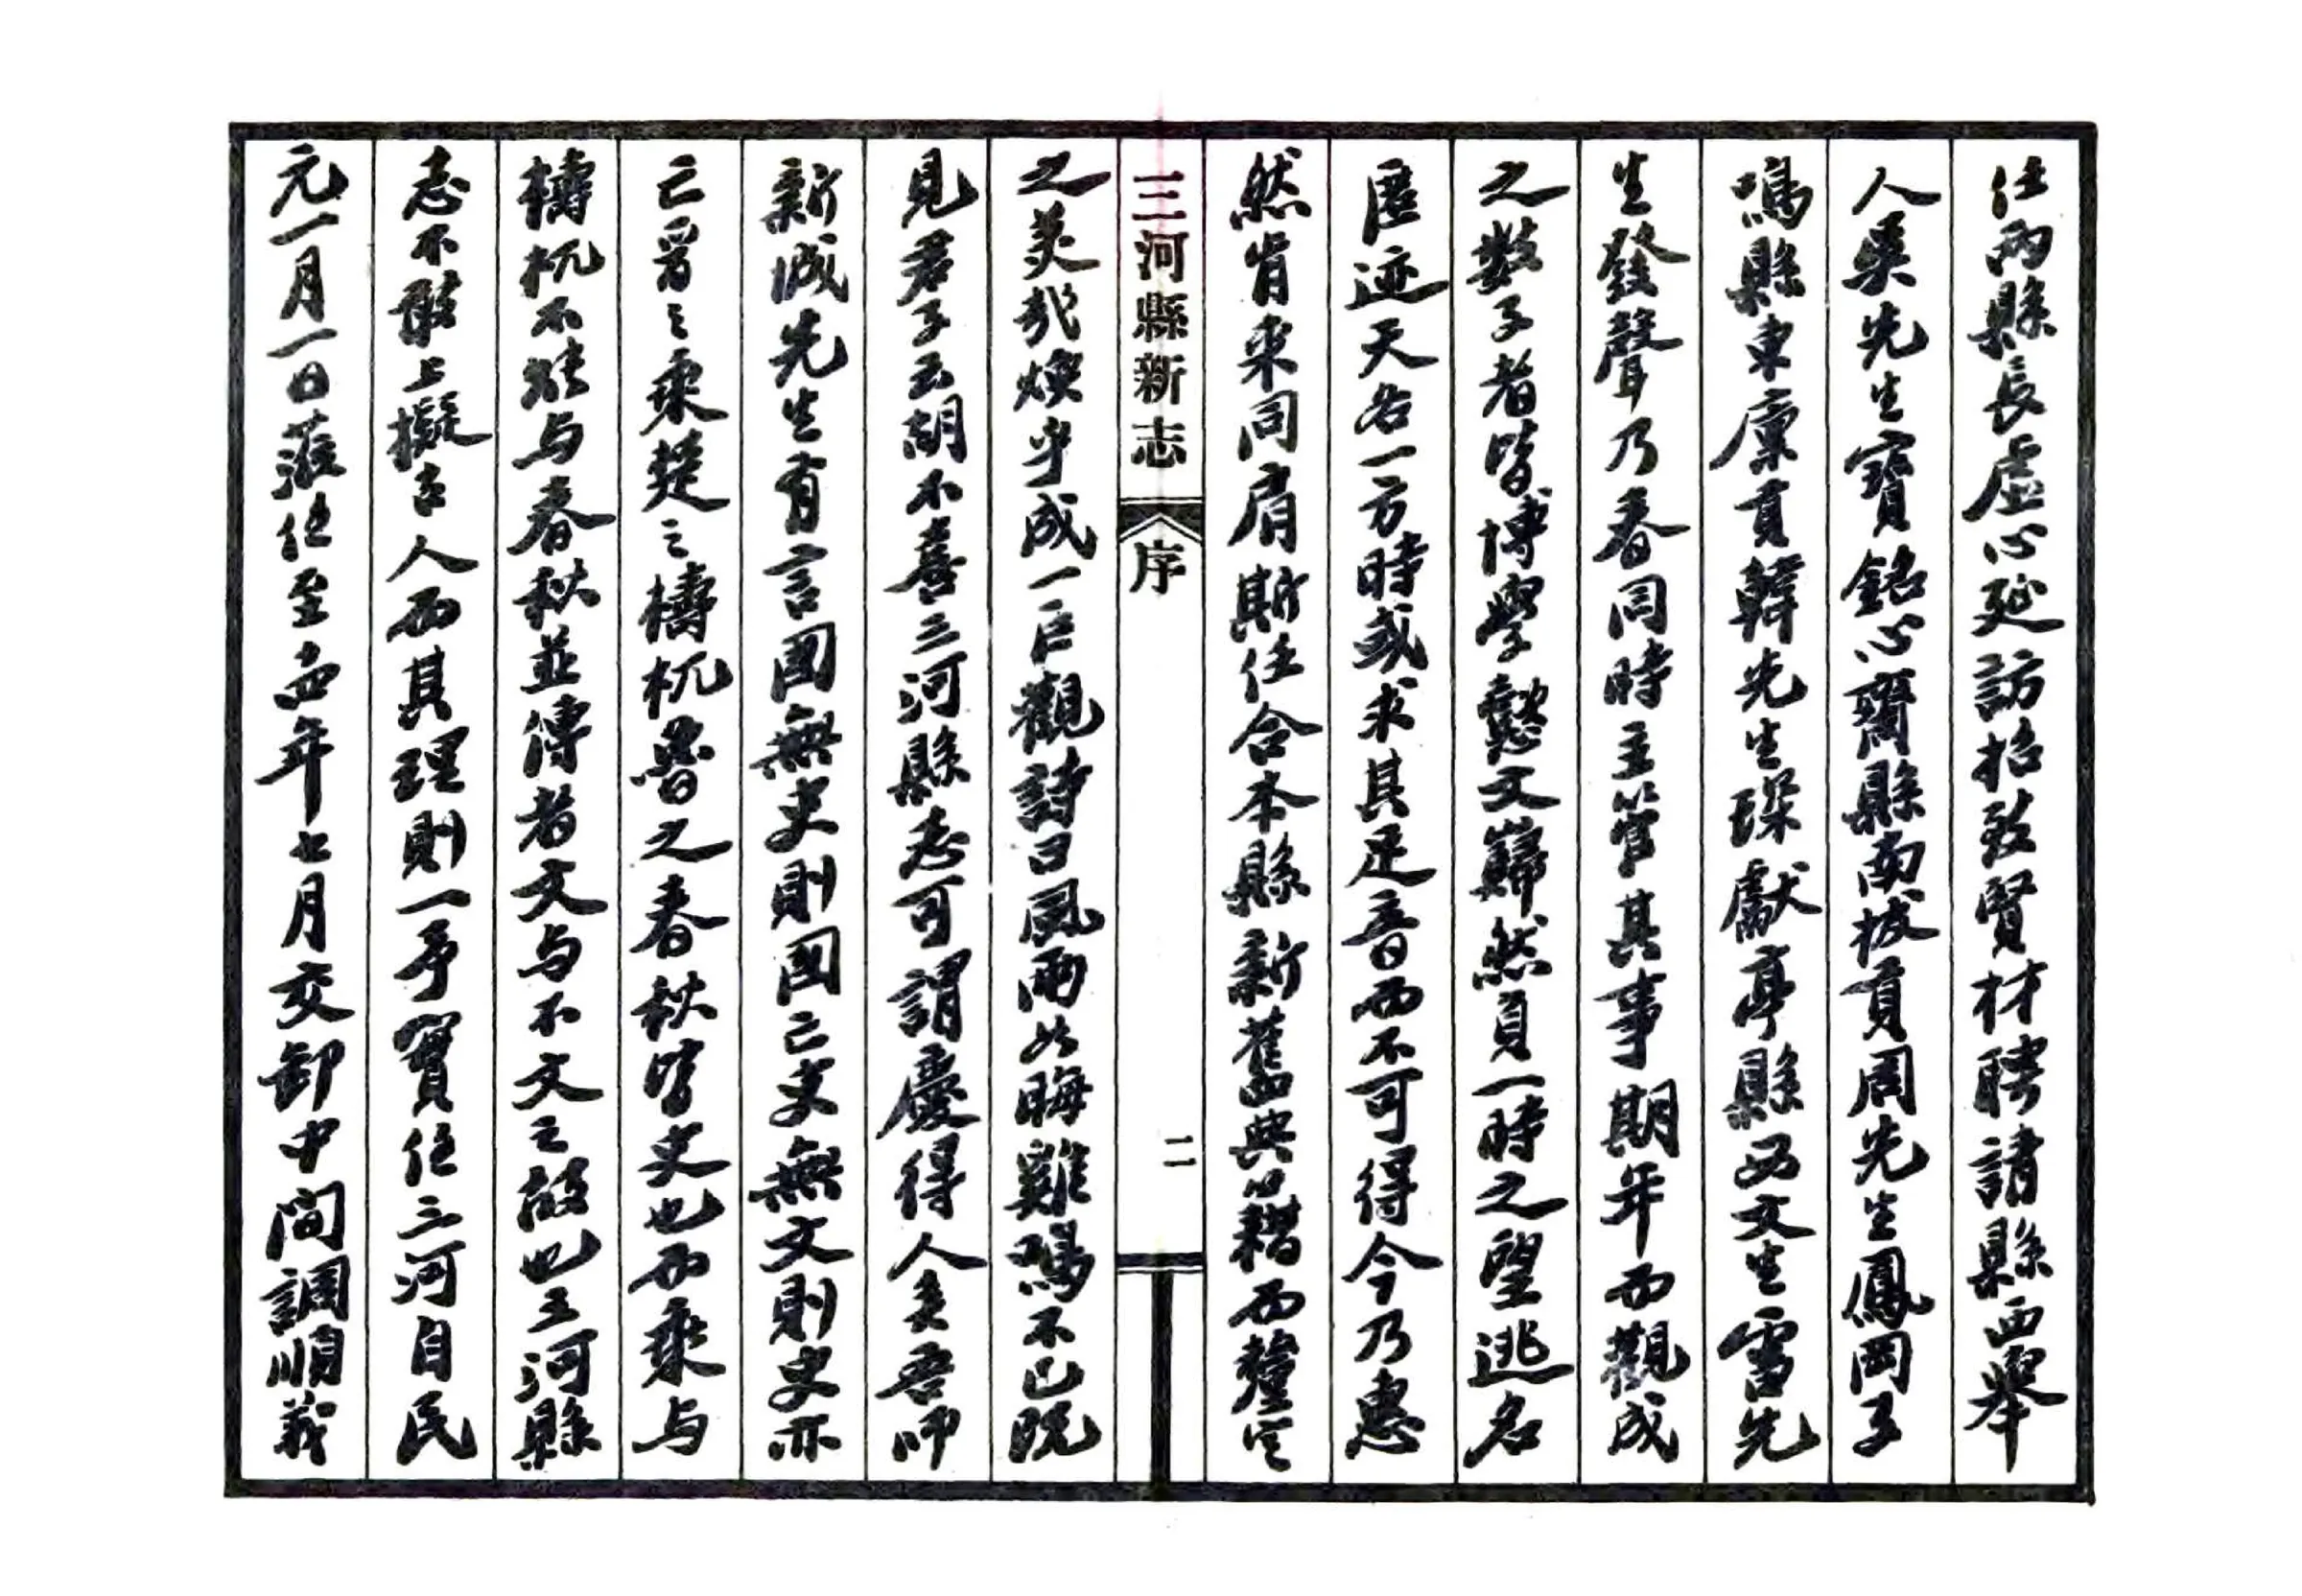 任兩縣長虛心延訪招致賢材聘請縣西舉
人吳先生寶銘心齋縣南拔貢周先生鳳岡子
鳴縣東廩貢韓先生琛獻亭縣西文生雷先
生發聲乃春同時主管其事期年而觀成
之數子者皆博學懿文巋然負一時之望逃名
匿迹天各一方時或求其足音而不可得今乃惠
然肯來同肩斯任合本縣新舊典籍而釐定
三河縣新志
序
二
之美哉煥乎成一巨觀詩曰風雨如晦雞鳴不已既
見君子云胡不喜三河縣志可謂慶得人矣吾師
新城先生有言國無史則國亡史無文則史亦
亡晉之乘楚之檮杌魯之春秋皆史也而乘与
檮杌不能与春秋並傳者文与不文之故也三河縣
志不敢上擬古人而其理則一予實任三河自民
元一月一日蒞任至四年七月交卸中間調順義